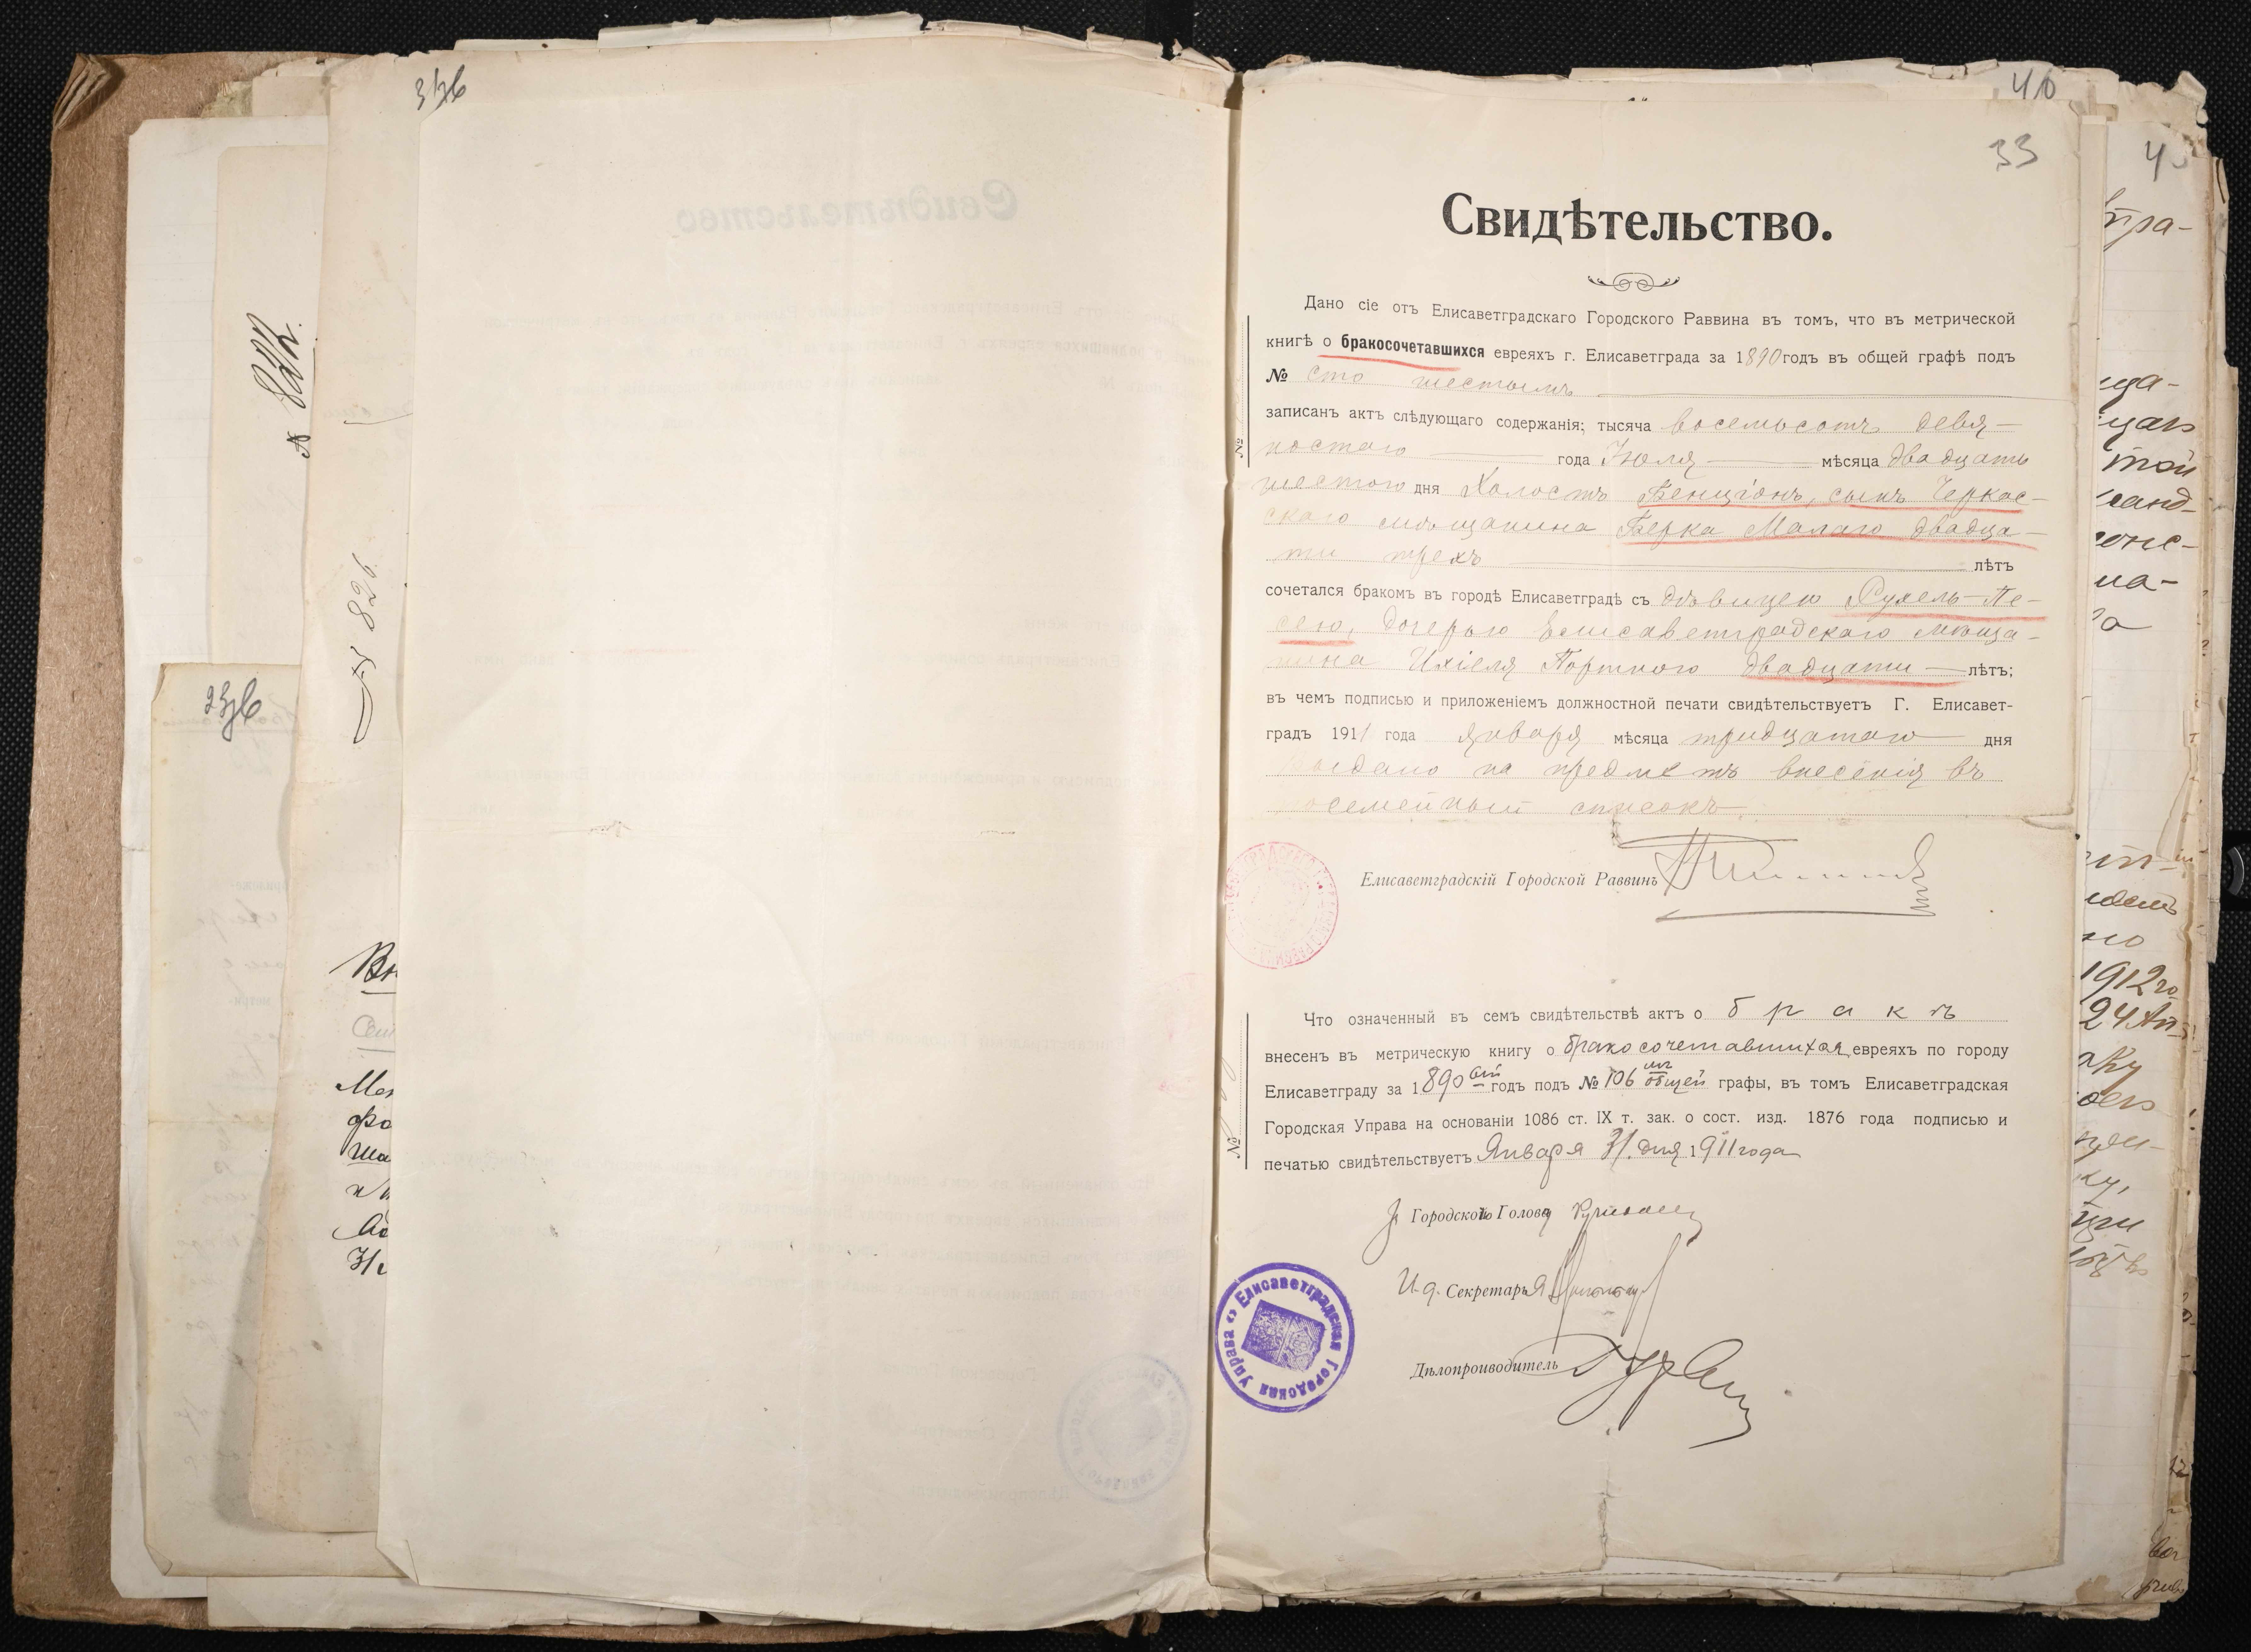 33
40
Свидѣтельство.
Дано сіе отъ Елисаветградскаго Городского Раввина въ томъ, что въ метрической
книгѣ о бракосочетавшихся евреяхъ г. Елисаветграда за 1890 годъ въ общей графѣ подъ
№ сто шестымъ
записанъ актъ слѣдующаго содержанія: тысяча восемьсотъ девя-
ностаго года Іюля мѣсяца двадцать
шестого дня Холостъ Бенціонъ, сынъ Черкас-
скаго мѣщанина Берка Малаго двадца-
ти трехъ лѣтъ
сочетался бракомъ въ городѣ Елисаветградѣ съ дѣвицею Рухель-Пе-
сею, дочерью Елисаветградскаго мѣща-
нина Ихіеля Портного двадцати лѣтъ;
въ чемъ подписью и приложеніемъ должностной печати свидѣтельствуетъ Г. Елисавет-
градъ 1911 года января мѣсяца тридцатаго дня
Выдано на предметъ внесенія въ
семейный списокъ.
Елисаветградскій Городской Раввинъ
Что означенный въ семъ свидѣтельствѣ актъ о бракѣ
внесенъ въ метрическую книгу о бракосочетавшихся евреяхъ по городу
Елисаветграду за 1890ый годъ подъ № 106мъ общей графы, въ томъ Елисаветградская
Городская Управа на основаніи 1086 ст. IX т. зак. о сост. изд. 1876 года подписью и
печатью свидѣтельствуетъ Января 31 дня 1911 года
Городской Голова
И.д. Секретаря
Дѣлопроизводитель
Елисаветградская Городская Управа
№ 826